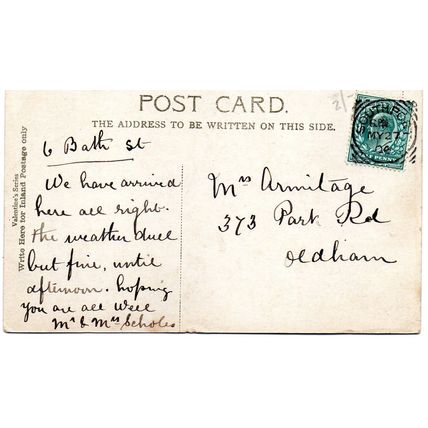 2/-
POST CARD.
THE ADDRESS TO BE WRITTEN ON THIS SIDE.
Valentine's Series
Write Here for Inland Postage only
6 Bath St
We have arrived
here all right.
the weather duel
but fine, until
afternoon. hopsing
you are all well
Mr & Mrs Scholes
Mrs Armitage
373 Park Rd
Oldham
SOUTHPORT
MY 27
PENNY